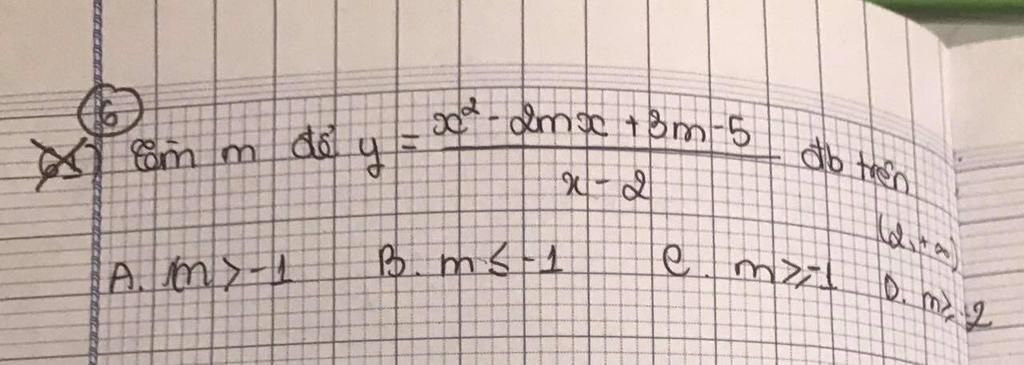 6
Tìm m để y = x² - 2mx + 3m - 5 / x - 2 đb trên (2, +∞)
A. m > -1 B. m ≤ -1 C. m ≥ -1 D. m ≥ -2